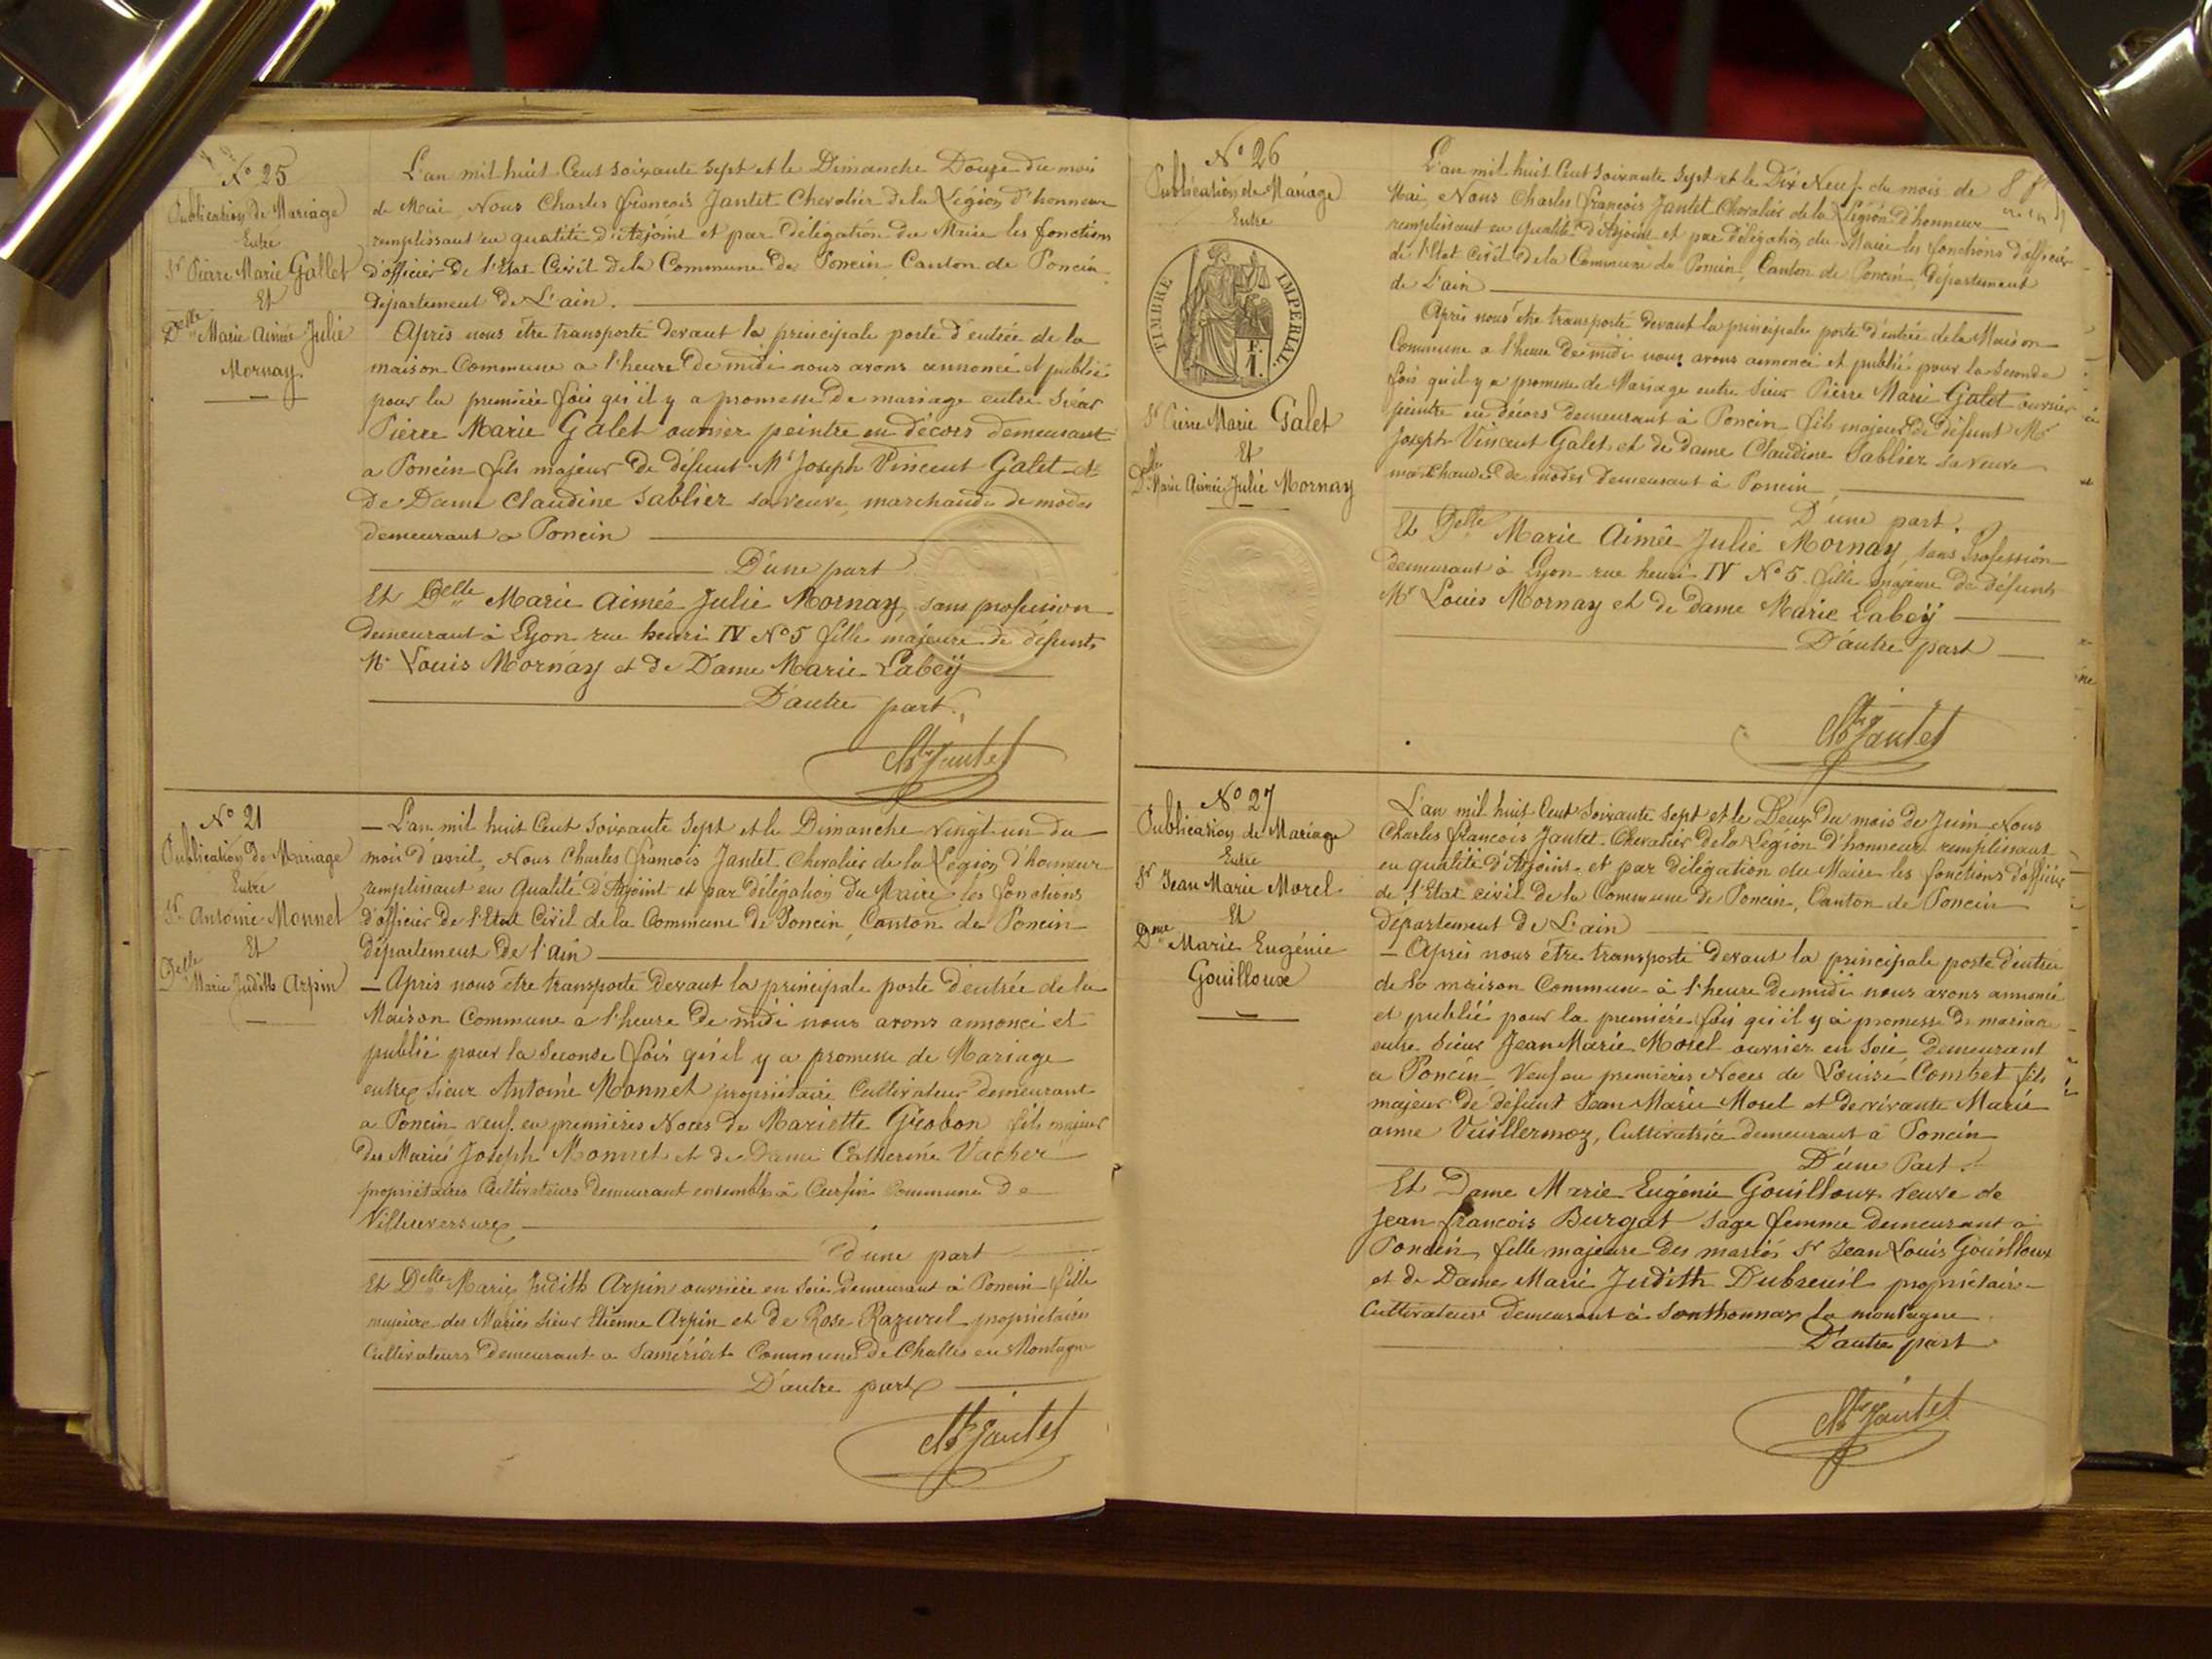 No 25
Publication de Mariage
Entre
Sr Pierre Marie Gallet
Et
Delle Marie Aimée Julie
Mornay.
L'an mil huit Cent soixante sept et le Dimanche Douze du mois
de Mai, Nous Charles françois Jantet Chevalier de la Légion d'honneur
remplissant en qualité d'Adjoint et par Délégation du Maire les fonctions
d'officier De l'Etat Civil de la Commune de Poncin Canton de Poncin
département De L'ain.
Après nous être transporté devant la principale porte d'entrée de la
maison Commune a l'heure De midi nous avons annoncé et publié
pour la première fois qu'il y a promesse De mariage entre Sieur
Pierre Marie Galet ouvrier peintre en décors demeurant
a Poncin fils majeur De défunt Mr Joseph Vincent Galet et
De Dame Claudine Sablier sa veuve, marchande de modes
demeurant a Poncin
D'une part
Et Delle Marie Aimée Julie Mornay, sans profession
demeurant à Lyon rue henri IV No 5 fille majeure de défunts
Mr Louis Mornay et de Dame Marie Labeÿ
D'autre part.
Chles Jantet
No 21
Publication De Mariage
Entre
Sr Antoine Monnet
Et
Delle Marie Judith Arpin
— L'an mil huit Cent soixante sept et le Dimanche vingt un du
mois d'avril, Nous Charles françois Jantet Chevalier de la Légion d'honneur
remplissant en Qualité d'Adjoint et par délégation du Maire les fonctions
d'officier De l'Etat Civil de la Commune de Poncin, Canton de Poncin
département De l'ain
— Après nous être transporté Devant la principale porte d'entrée de la
Maison Commune a l'heure De midi nous avons annoncé et
publié pour la Seconde fois qu'il y a promesse de Mariage
entre Sieur Antoine Monnet propriétaire Cultivateur demeurant
a Poncin veuf en premières Noces de Mariette Grobon fils majeur
Des Mariés Joseph Monnet et de Dame Catherine Vacher
propriétaires Cultivateurs Demeurant ensemble à Commune De
Villereversure
d'une part
Et Delle Marie Judith Arpin ouvrière en Soie Demeurant à Poncin fille
majeure des Mariés Sieur Etienne Arpin et de Rose propriétaires
Cultivateurs Demeurant a Samériat Commune De Challes en Montagne
D'autre part
Chles Jantet
No 26
Publication de Mariage
Entre
TIMBRE IMPERIAL
F.
1.
Sr Pierre Marie Galet
Et
Delle Marie Aimée Julie Mornay
L'an mil huit Cent soixante Sept et le Dix Neuf du mois de
Mai, Nous Charles françois Jantet Chevalier de la Légion d'honneur
remplissant en qualité d'Adjoint et par délégation du Maire les fonctions d'officier
de l'Etat Civil de la Commune de Poncin, Canton de Poncin, département
de L'ain
Après nous être transporté devant la principale porte d'entrée de la Maison
Commune a l'heure De midi nous avons annoncé et publié pour la Seconde
fois qu'il y a promesse de Mariage entre Sieur Pierre Marie Galet ouvrier
peintre en décors demeurant à Poncin fils majeur De défunt Mr
Joseph Vincent Galet et de Dame Claudine Sablier sa veuve
marchande de modes demeurant à Poncin
D'une part.
Et Delle Marie Aimée Julie Mornay, sans Profession
demeurant à Lyon rue henri IV No 5 fille majeure de défunts
Mr Louis Mornay et de dame Marie Labeÿ
D'autre part
Chles Jantet
No 27
Publication de Mariage
Entre
Sr Jean Marie Morel
Et
Dame Marie Eugénie
Gouilloux
L'an mil huit Cent Soixante Sept et le Deux Du mois de Juin Nous
Charles françois Jantet Chevalier de la Légion d'honneur remplissant
en qualité d'Adjoint et par délégation du Maire les fonctions d'officier
de l'Etat civil de la Commune De Poncin, Canton de Poncin
département De L'ain
— Après nous être transporté devant la principale porte d'entrée
de la maison Commune à l'heure De midi nous avons annoncé
et publié pour la première fois qu'il y à promesse De mariage
entre Sieur Jean Marie Morel ouvrier en Soie, Demeurant
a Poncin Veuf en premières Noces de Louise Combet fils
majeur De défunt Jean Marie Morel et de vivante Marie
anne Vuillermoz, Cultivatrice demeurant à Poncin
D'une Part
Et Dame Marie Eugénie Gouilloux veuve de
Jean françois Burgat Sage femme demeurant à
Poncin, fille majeure Des mariés Sr Jean Louis Gouilloux
et de Dame Marie Judith Dubreuil propriétaires
Cultivateurs Demeurant à Sonthonnax la montagne
D'autre part
Chles Jantet